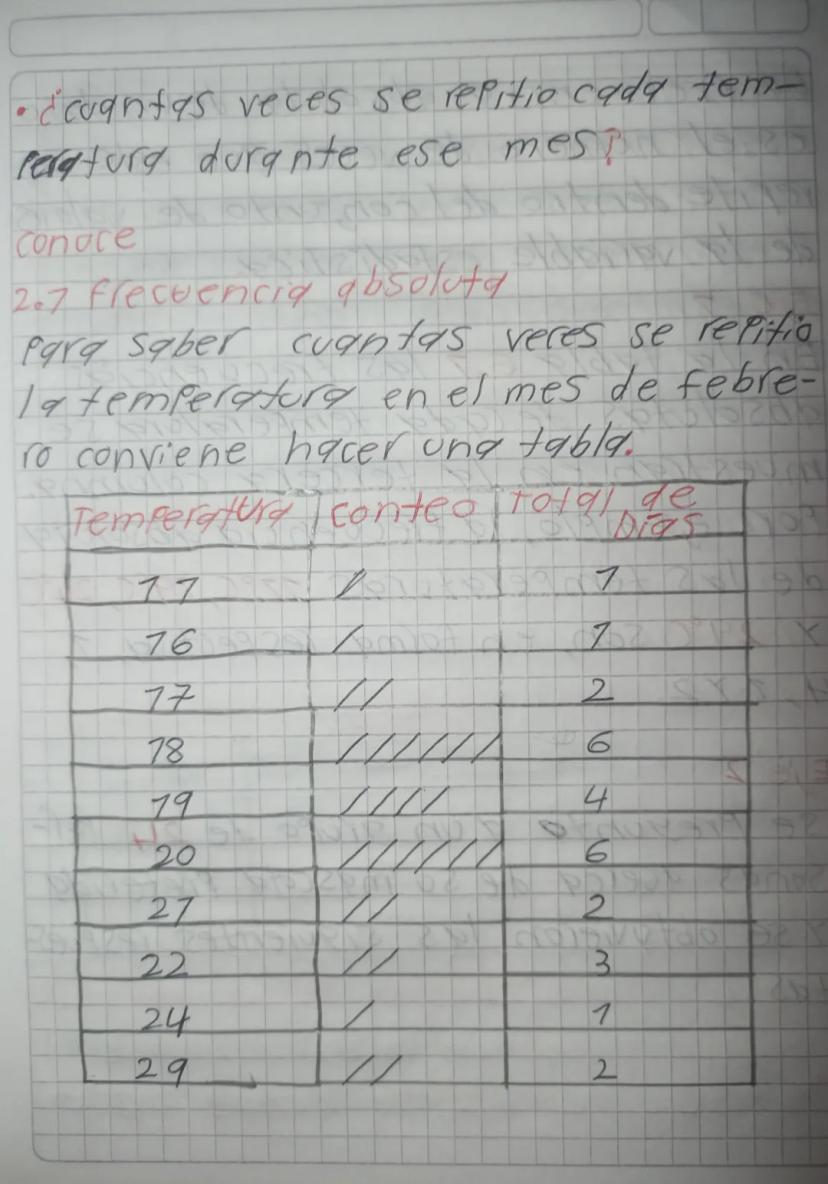 • ¿cuantas veces se repitio cada tem-
peratura durante ese mes?
conoce
2.7 frecuencia absoluta
para saber cuantas veces se repitio
la temperatura en el mes de febre-
ro conviene hacer una tabla.
Temperatura conteo total de
Días
11 / 1
16 / 1
17 // 2
18 ////// 6
19 //// 4
20 ////// 6
21 // 2
22 // 3
24 / 1
29 // 2